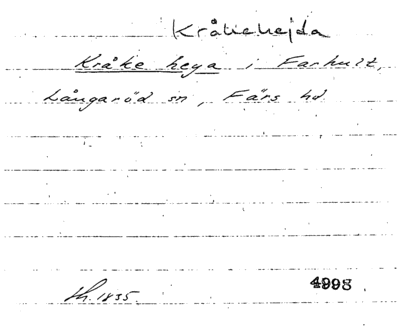 Kråkehejda
Kråke heya i Farhult,
Långaröd sn, Färs hd
1835.
4998